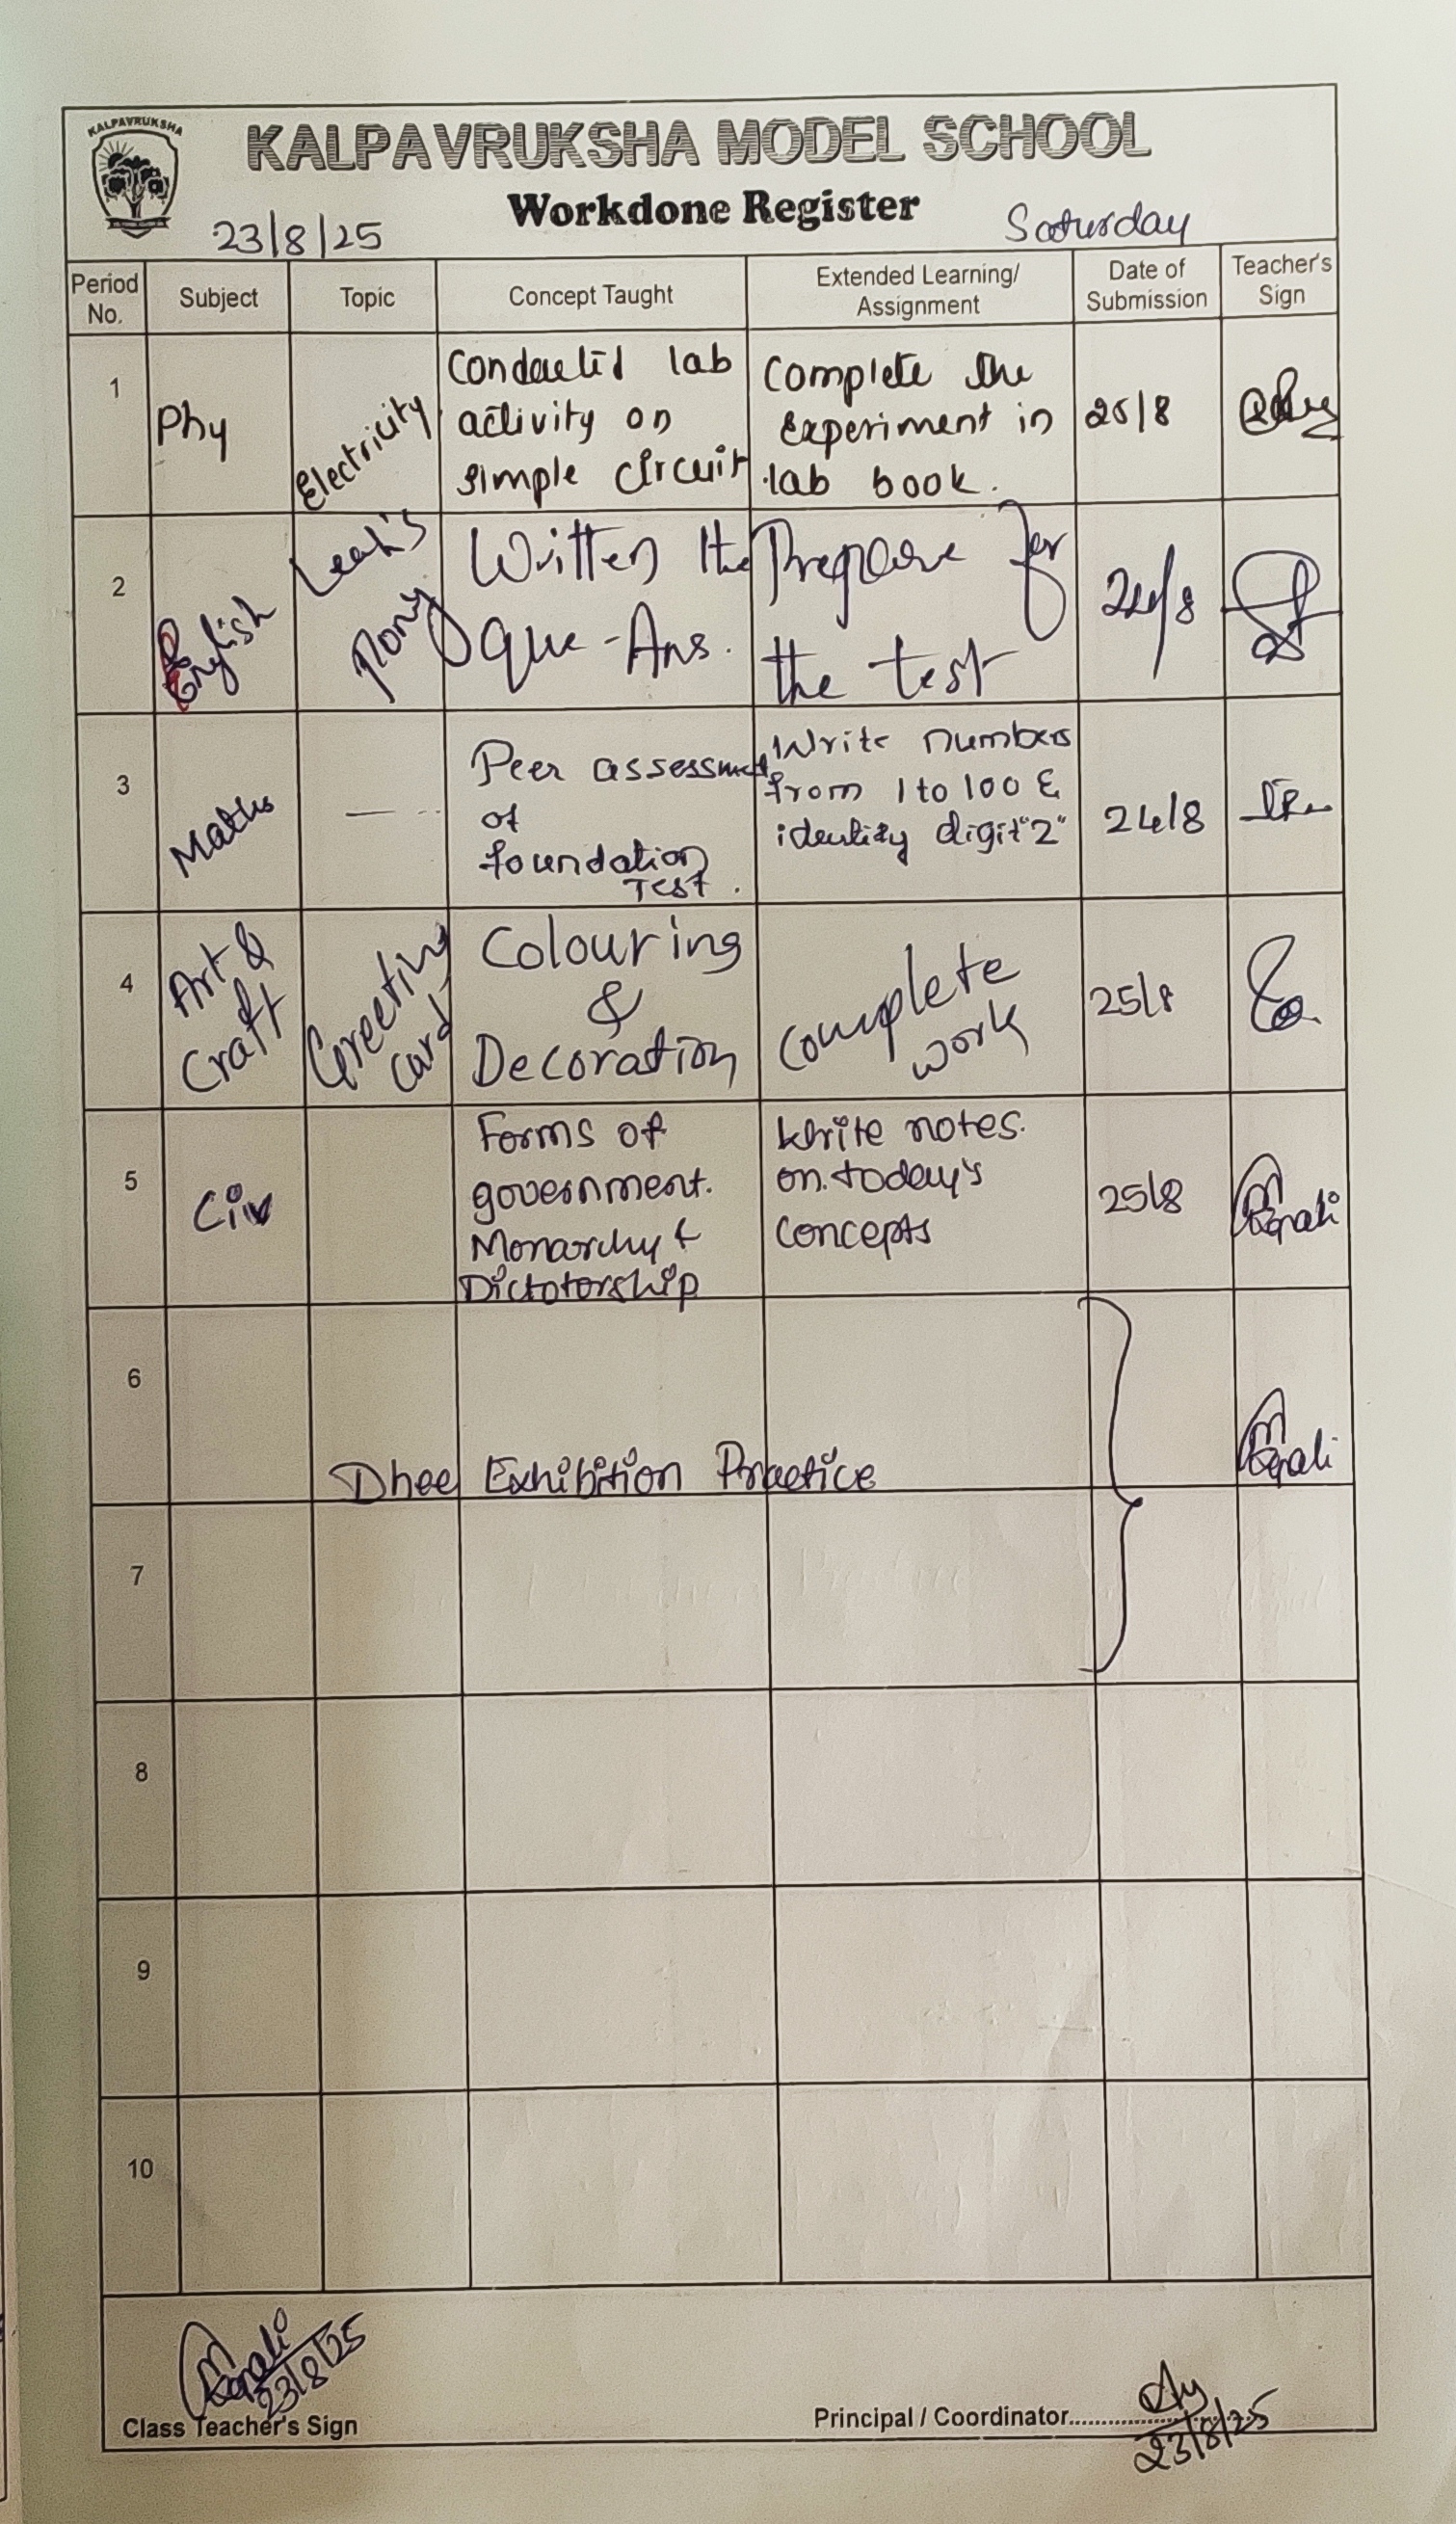 KALPAVRUKSHA
KALPAVRUKSHA MODEL SCHOOL
Workdone Register
23/8/25
Saturday
Period No. Subject Topic Concept Taught Extended Learning/ Assignment Date of Submission Teacher's Sign
1
Phy
Electricity
Conducted lab
activity on
simple circuit
Complete the
experiment in
lab book.
25/8
2
English
Leah's
Pony
Written the
que-Ans.
Prepare for
the test
24/8
3
Maths
Peer assessment
of
foundation
Test.
Write numbers
from 1 to 100 &
identify digit "2"
24/8
4
Art &
Craft
Greeting
Card
Colouring
&
Decoration
Complete
work
25/8
5
Civ
Forms of
government.
Monarchy &
Dictotorship
Write notes.
on today's
concepts
25/8
6
Dhee Exhibition Practice
7
8
9
10
23/8/25
Class Teacher's Sign
Principal / Coordinator
23/8/25